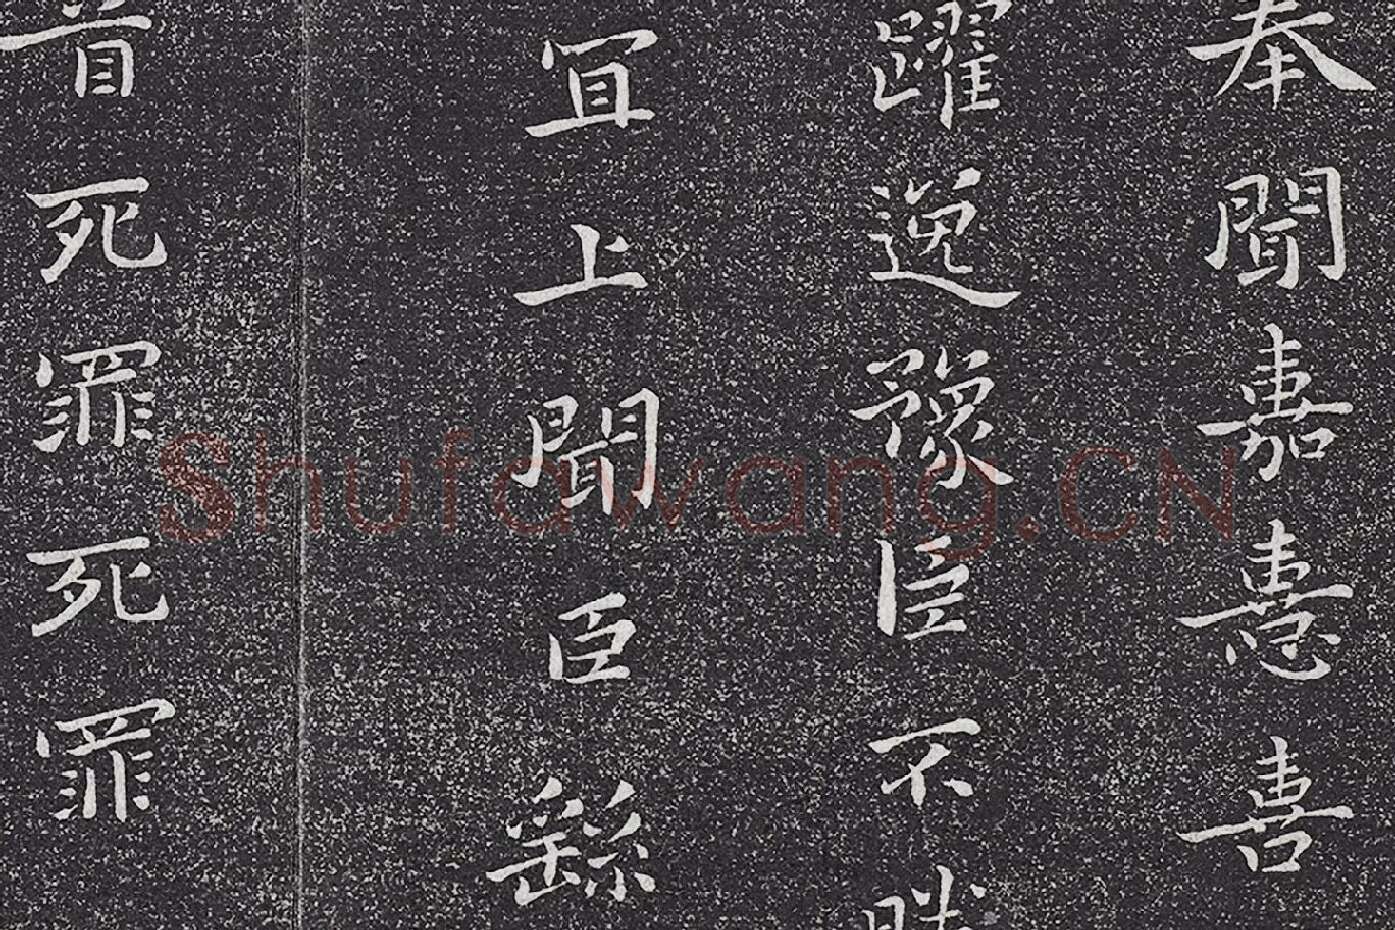 奉聞嘉憙喜
躍逸豫臣不勝
冝上聞臣繇
首死罪死罪
Shufawang.CN